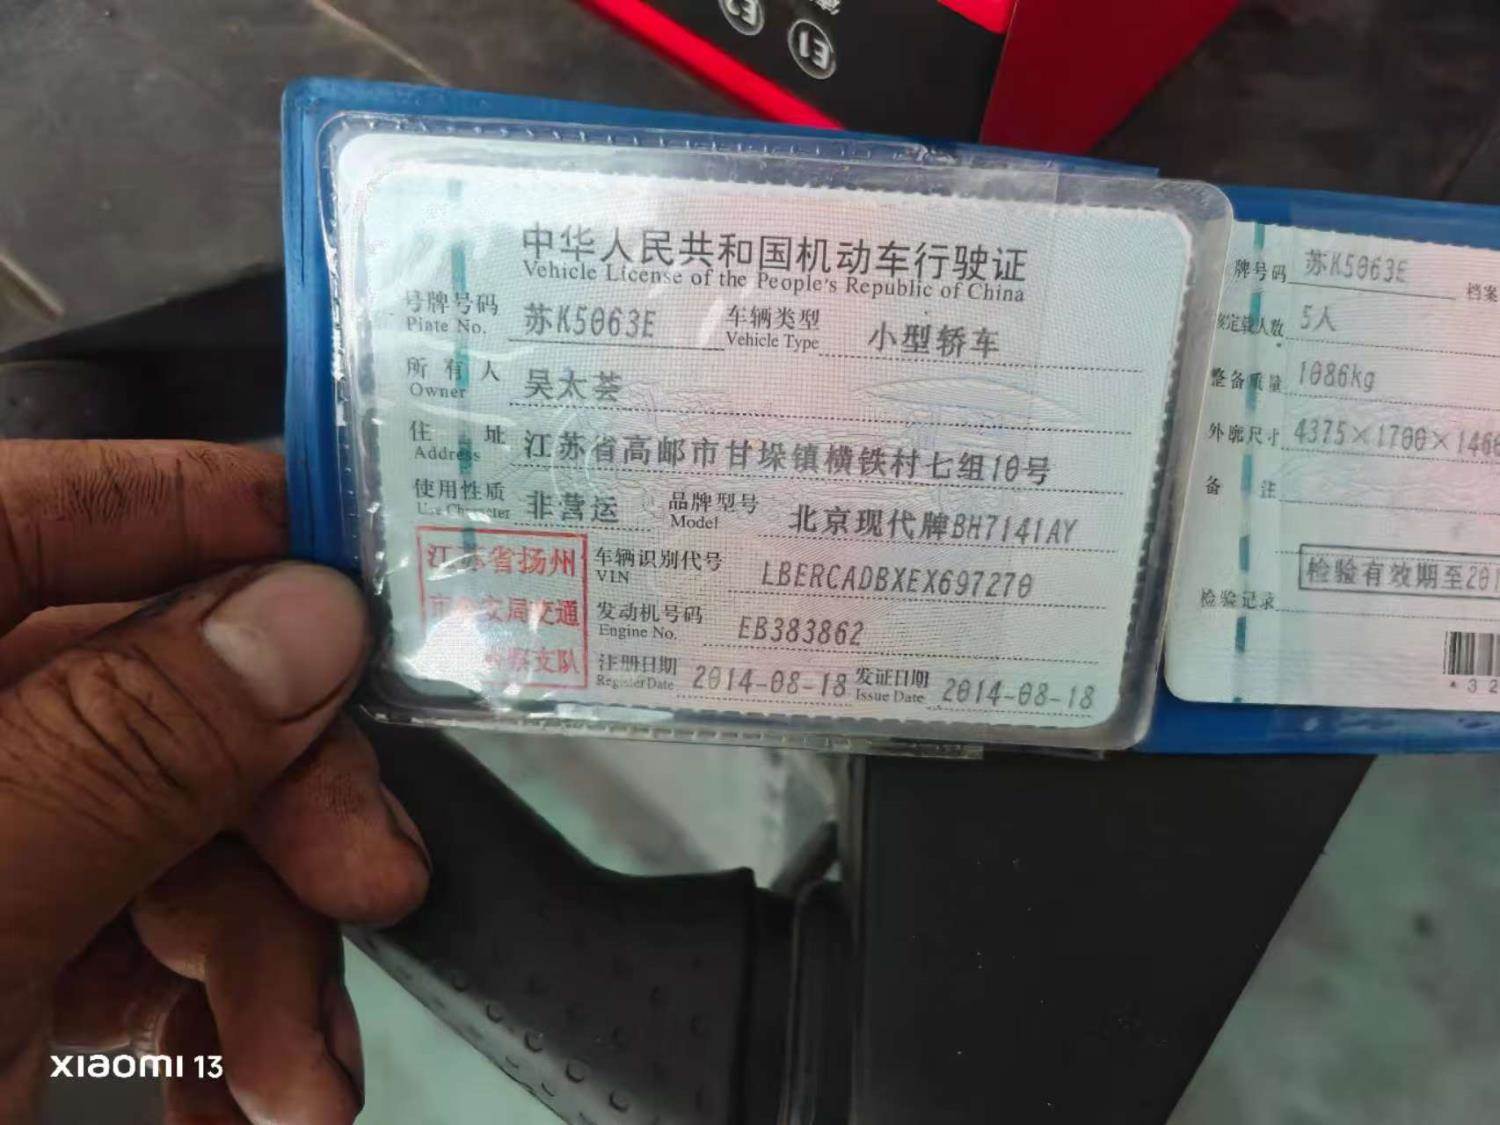 E2
E1
中华人民共和国机动车行驶证
Vehicle License of the People's Republic of China
号牌号码 苏K5063E 车辆类型 小型轿车
Plate No. Vehicle Type
所有人 吴太荟
Owner
住址 江苏省高邮市甘垛镇横铁村七组10号
Address
使用性质 非营运 品牌型号 北京现代牌BH7141AY
Use Character Model
江苏省扬州
市公安局交通
警察支队
车辆识别代号 LBERCADBXEX697270
VIN
发动机号码 EB383862
Engine No.
注册日期 2014-08-18 发证日期 2014-08-18
Register Date Issue Date
牌号码 苏K5063E 档案
核定载人数 5人
整备质量 1086kg
外廓尺寸 4375×1700×146
备注
检验有效期至201
检验记录
*32
XIAOMI 13